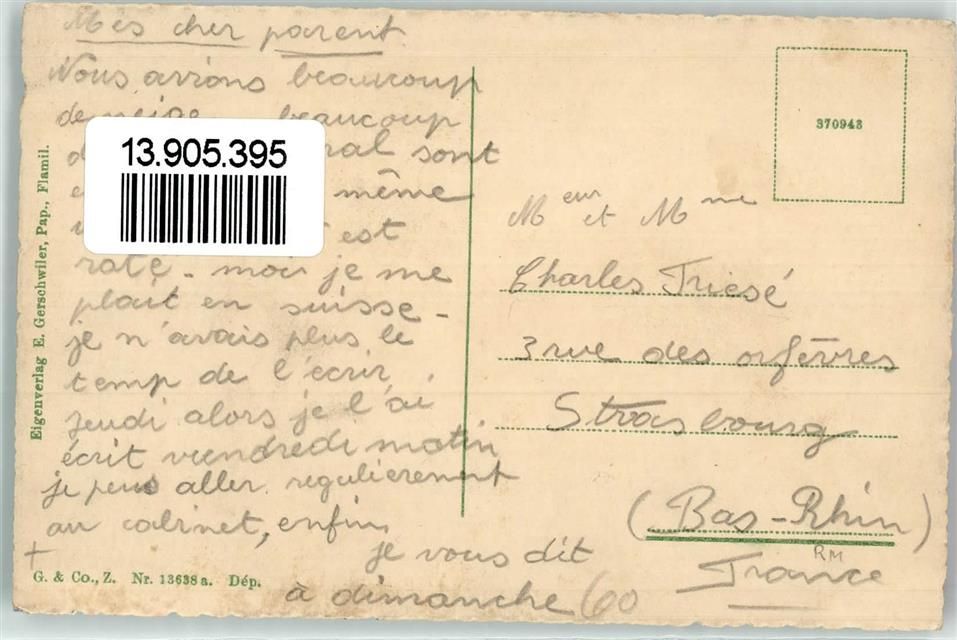 Mes cher parent.
Nous avions beaucoup
de neige beaucoup
sont
13.905.395
même
est
raté - moi je me
plait en suisse -
je n'avais plus le
temp de l'écrir
jeudi alors je l'ai
écrit viendredi matin
je peus aller regulièrement
au cabinet, enfin,
je vous dit
à dimanche
+
Eigenverlag E. Gerschwiler, Pap., Flamil.
G. & Co., Z. Nr. 13638a. Dép.
370943
Meur et Mme
Charles Triesé
3 rue des orfèvres
Strasbourg
(Bas-Rhin)
RM
France